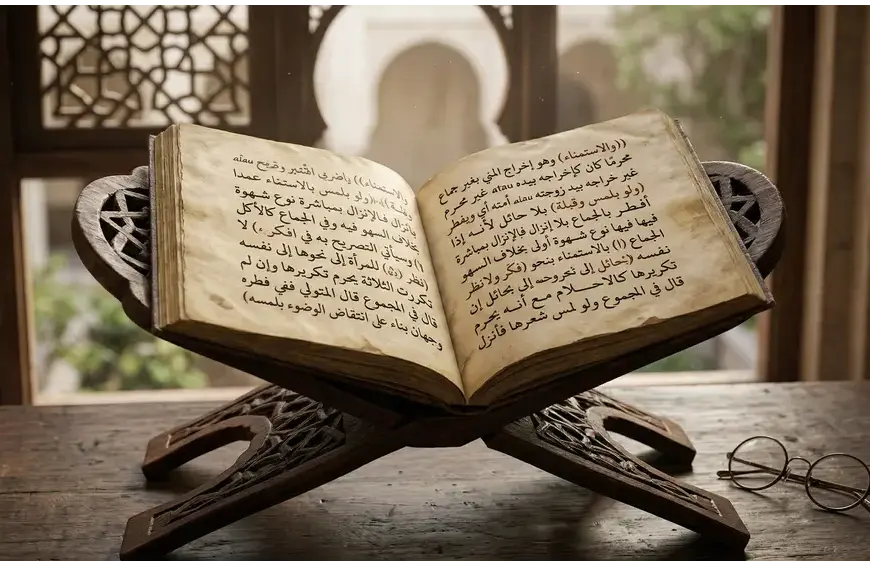 ((والاستمناء) وهو إخراج المني بغير جماع
محرمًا كان كإخراجه بيده atau غير محرم
غير خراجه بيد زوجته atau أمته أي ويفطر
(ولو بلمس وقبلة) بلا حائل لأنه إذا
أفطر بالجماع بلا إنزال فالإنزال بمباشرة
فيها فيها نوع شهوة أولى بخلاف السهو
الجماع (١) بالاستمناء بنحو (فكر ولانظر
نفسه إلى بحائل إن
تكريرها كالاحلام مع أنه يحرم
قال في المجموع ولو لمس شعرها فأنزل
والاستمناء)) atau
(ولو بلمس بالاستناء عمدا
بأنزال فالإنزال بمباشرة نوع شهوة
بخلاف السهو فيه وفي الجماع كالأكل
١) وسيأتي التصريح به في لا
(نظر للمرأة إلى نحوها إلى نفسه
تكررت الثلاثة يحرم تكريرها وإن لم
قال في المجموع قال المتولي ففي فطره
وجهان بناء على انتقاض الوضوء بلمسه)